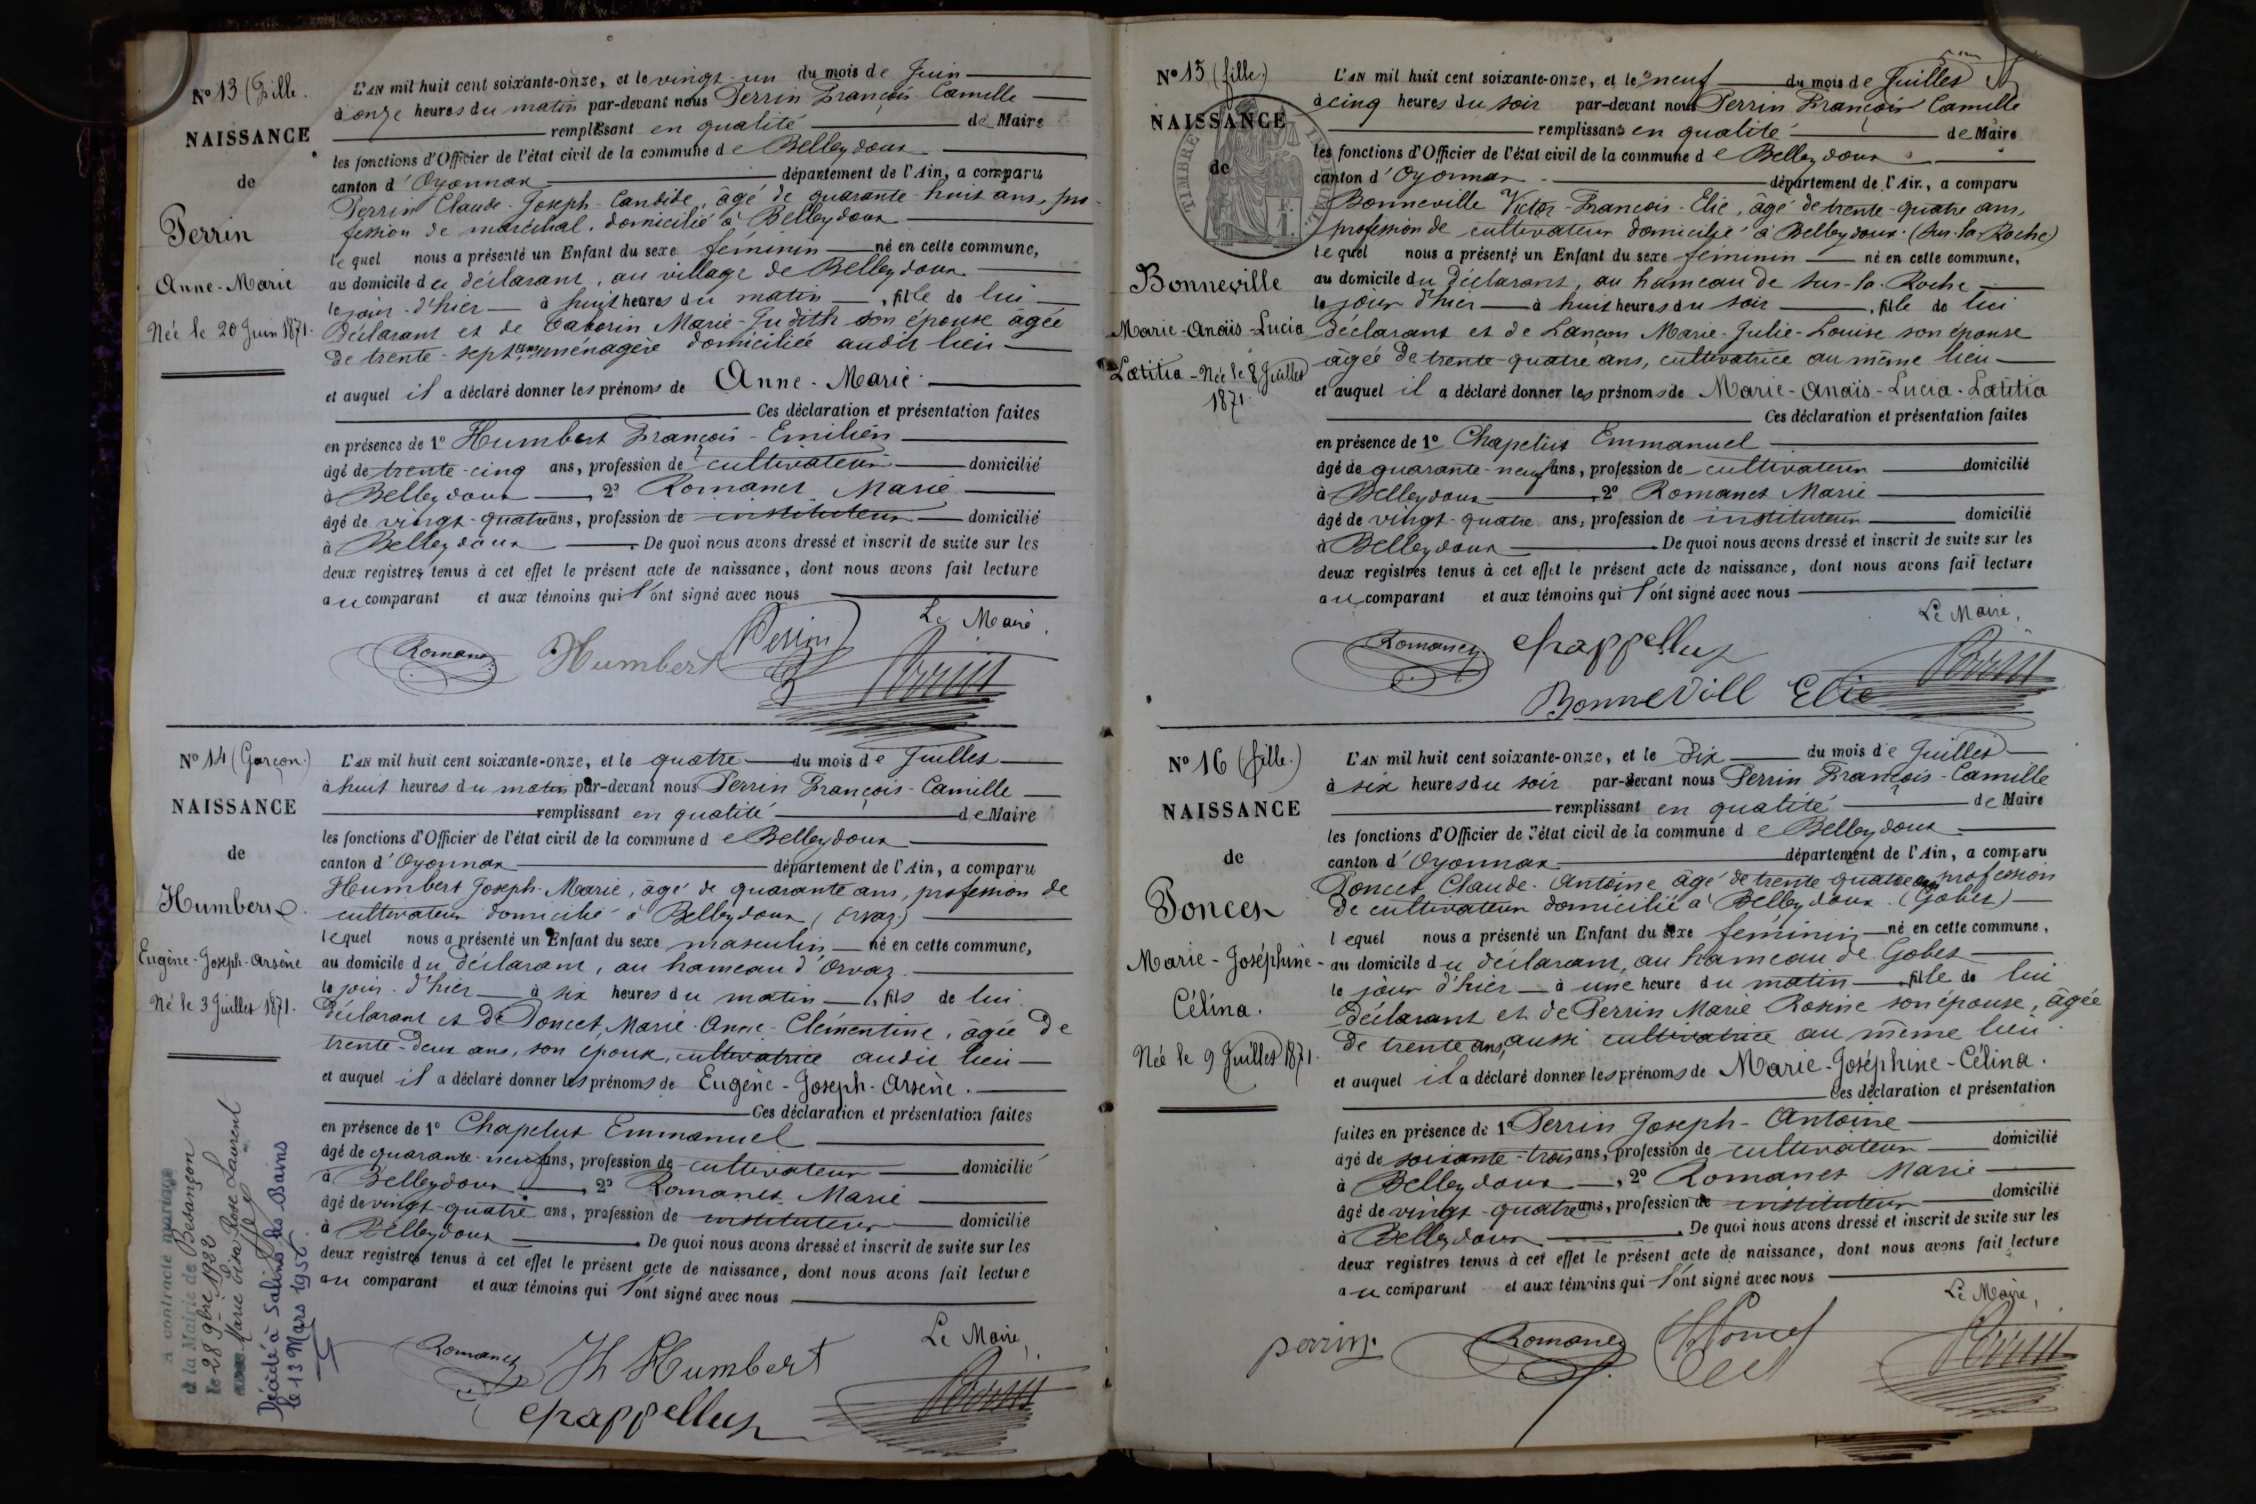 N° 13 (Fille.
NAISSANCE
de
Perrin
Anne-Marie
Née le 20 Juin 1871.
L'AN mil huit cent soixante-onze, et le vingt-un du mois de Juin
à onze heures du matin par-devant nous Perrin François Camille
remplissant en qualité de Maire
les fonctions d'Officier de l'état civil de la commune de Belleydoux
canton d'Oyonnax département de l'Ain, a comparu
Perrin Claude-Joseph-Candide, âgé de quarante-huit ans, pro-
fession de maréchal, domicilié à Belleydoux
lequel nous a présenté un Enfant du sexe féminin né en cette commune,
au domicile du déclarant, au village de Belleydoux
le jour d'hier à huit heures du matin, fille de lui
déclarant et de Taborin Marie-Judith son épouse âgée
de trente-sept ans ménagère domiciliée audit lieu
et auquel il a déclaré donner les prénoms de Anne-Marie.
Ces déclaration et présentation faites
en présence de 1° Humbert François-Emilien
âgé de trente-cinq ans, profession de cultivateur domicilié
à Belleydoux, 2° Romanet Marie
âgé de vingt-quatre ans, profession de instituteur domicilié
à Belleydoux. De quoi nous avons dressé et inscrit de suite sur les
deux registres tenus à cet effet le présent acte de naissance, dont nous avons fait lecture
au comparant et aux témoins qui l'ont signé avec nous
Le Maire,
Romanet Humbert Perrin Perrin
N° 14 (Garçon.)
NAISSANCE
de
Humbert
Eugène-Joseph-Arsène
Né le 3 Juillet 1871.
A contracté mariage
à la Mairie de Besançon
le 28 9bre 1932
avec Marie Lisa Rose Laurent
Décédé à Salins les Bains
le 13 Mars 1956.
L'AN mil huit cent soixante-onze, et le quatre du mois de Juillet
à huit heures du matin par-devant nous Perrin François-Camille
remplissant en qualité de Maire
les fonctions d'Officier de l'état civil de la commune de Belleydoux
canton d'Oyonnax département de l'Ain, a comparu
Humbert Joseph-Marie, âgé de quarante ans, profession de
cultivateur domicilié à Belleydoux (Orvaz)
lequel nous a présenté un Enfant du sexe masculin né en cette commune,
au domicile du déclarant, au hameau d'Orvaz
le jour d'hier à six heures du matin, fils de lui
déclarant et de Poncet, Marie-Anne-Clémentine, âgée de
trente-deux ans, son épouse, cultivatrice audit lieu
et auquel il a déclaré donner les prénoms de Eugène-Joseph-Arsène.
Ces déclaration et présentation faites
en présence de 1° Chapelut Emmanuel
âgé de quarante-neuf ans, profession de cultivateur domicilié
à Belleydoux, 2° Romanet Marie
âgé de vingt-quatre ans, profession de instituteur domicilié
à Belleydoux. De quoi nous avons dressé et inscrit de suite sur les
deux registres tenus à cet effet le présent acte de naissance, dont nous avons fait lecture
au comparant et aux témoins qui l'ont signé avec nous
Le Maire,
Romanet Jh Humbert
Chappelluz Perrin
N° 15 (fille.)
NAISSANCE
de
TIMBRE
Bonneville
Marie-Anaïs-Lucia
Lætitia - Née le 8 Juillet
1871.
L'AN mil huit cent soixante-onze, et le neuf du mois de Juillet
à cinq heures du soir par-devant nous Perrin François Camille
remplissant en qualité de Maire
les fonctions d'Officier de l'état civil de la commune de Belleydoux
canton d'Oyonnax département de l'Ain, a comparu
Bonneville Victor-François-Elie, âgé de trente-quatre ans,
profession de cultivateur domicilié à Belleydoux (Sur-la-Roche)
lequel nous a présenté un Enfant du sexe féminin né en cette commune,
au domicile du déclarant, au hameau de sur-la-Roche
le jour d'hier à huit heures du soir, fille de lui
déclarant et de Lançon Marie-Julie-Louise son épouse
âgée de trente-quatre ans, cultivatrice au même lieu
et auquel il a déclaré donner les prénoms de Marie-Anaïs-Lucia-Lætitia
Ces déclaration et présentation faites
en présence de 1° Chapelut Emmanuel
âgé de quarante-neuf ans, profession de cultivateur domicilié
à Belleydoux, 2° Romanet Marie
âgé de vingt-quatre ans, profession de instituteur domicilié
à Belleydoux. De quoi nous avons dressé et inscrit de suite sur les
deux registres tenus à cet effet le présent acte de naissance, dont nous avons fait lecture
au comparant et aux témoins qui l'ont signé avec nous
Le Maire,
Romanet Chappelluz
Bonnevill Elie Perrin
N° 16 (fille.)
NAISSANCE
de
Poncet
Marie-Joséphine-
Célina.
Née le 9 Juillet 1871.
L'AN mil huit cent soixante-onze, et le dix du mois de Juillet
à six heures du soir par-devant nous Perrin François-Camille
remplissant en qualité de Maire
les fonctions d'Officier de l'état civil de la commune de Belleydoux
canton d'Oyonnax département de l'Ain, a comparu
Poncet, Claude-Antoine âgé de trente-quatre ans profession
de cultivateur domicilié à Belleydoux (Gobet)
lequel nous a présenté un Enfant du sexe féminin né en cette commune,
au domicile du déclarant, au hameau de Gobet
le jour d'hier à une heure du matin fille de lui
déclarant et de Perrin Marie Rosine son épouse, âgée
de trente ans, aussi cultivatrice au même lieu.
et auquel il a déclaré donner les prénoms de Marie-Joséphine-Célina.
Ces déclaration et présentation
faites en présence de 1° Perrin Joseph-Antoine
âgé de soixante-trois ans, profession de cultivateur domicilié
à Belleydoux, 2° Romanet Marie
âgé de vingt-quatre ans, profession de instituteur domicilié
à Belleydoux. De quoi nous avons dressé et inscrit de suite sur les
deux registres tenus à cet effet le présent acte de naissance, dont nous avons fait lecture
au comparant et aux témoins qui l'ont signé avec nous
Le Maire,
perrin Romanet Poncet Perrin